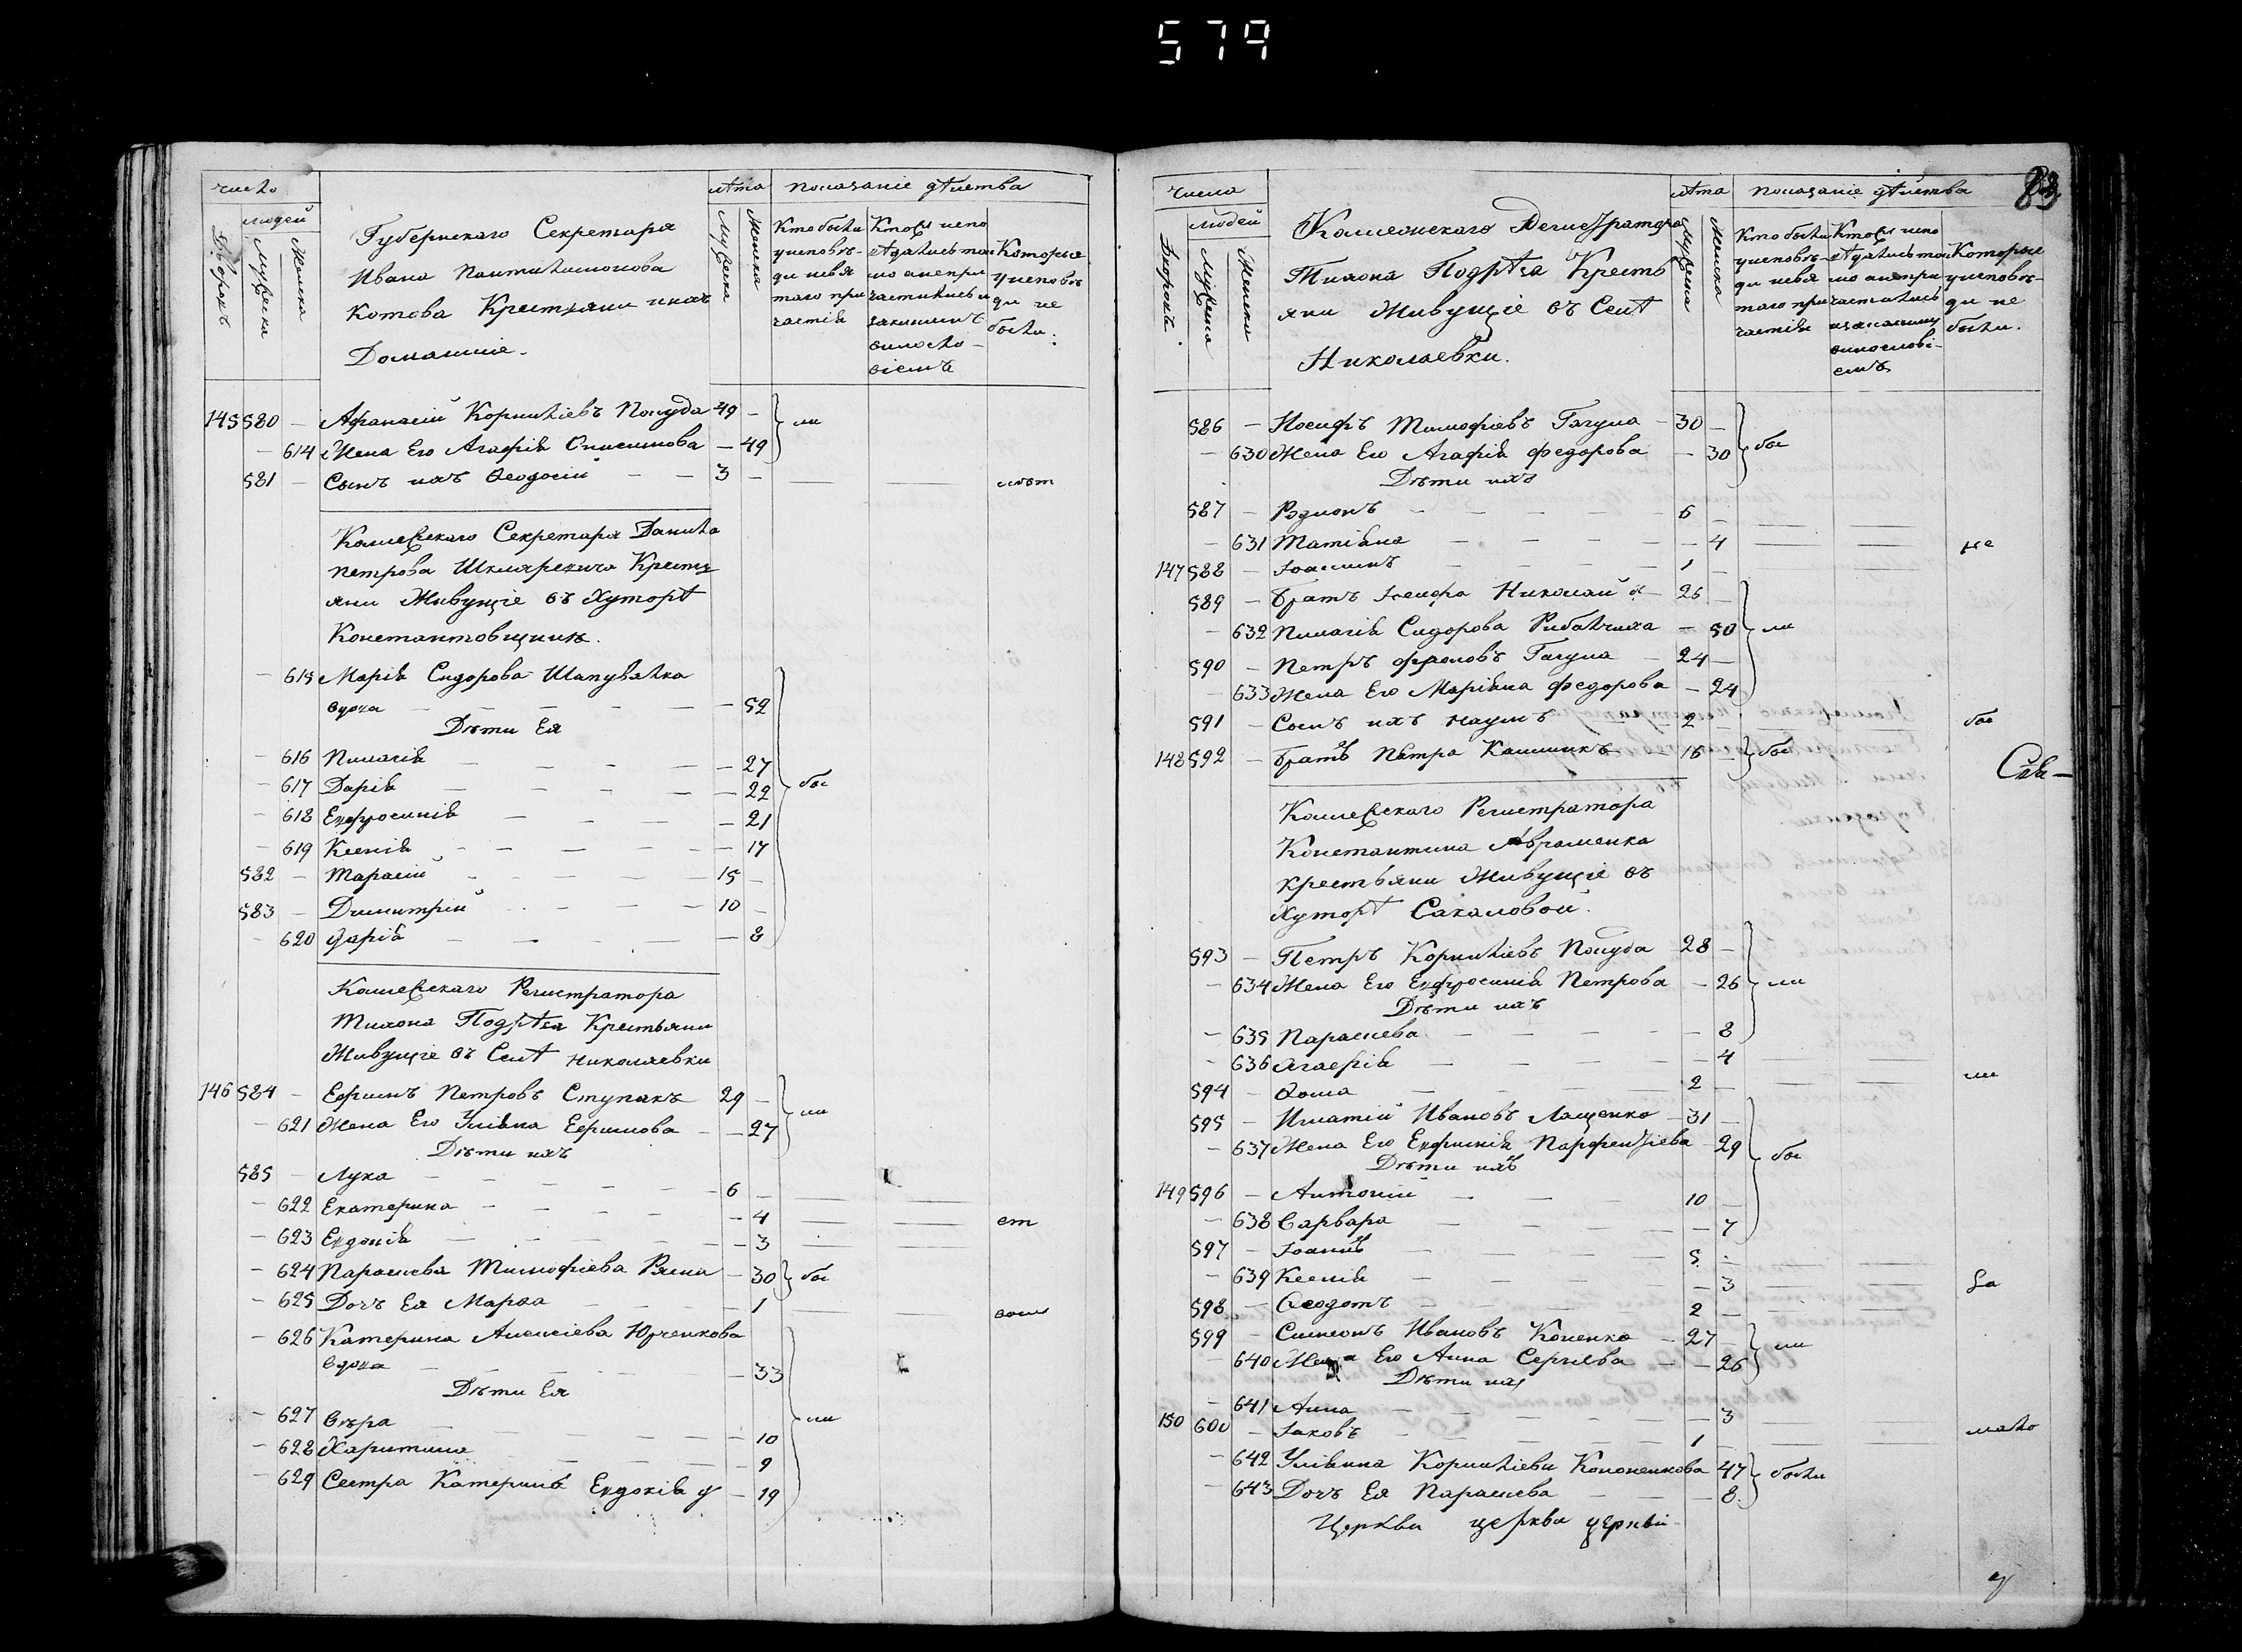 579
число
людей
Дворовъ
Мужеска
Женска
Губернскаго Секретаря
Ивана Пантилимонова
Котова Крестьяни ихъ
Домашніе.
лѣта
Мужеска
Женска
показаніе дѣйства
Кто были
у исповѣ-
ди и свя
таго при
частія
Которые
у исповѣ
ди не
были.
145 580 — Афанасій Корниліевъ Покуда 49 —
— 614 Жена Его Агафія Онисимова — 49
ли
581 — Сынъ ихъ Ѳеодосій — — 3 —
лѣт
Колежскаго Секретаря Данила
Петрова Шкляревича Кресть
яни Живущіе въ Хуторѣ
Константовщинѣ.
— 615 Марія Сидорова Шапувалка
вдова — 52
Дѣти Ея
— 616 Пилагія — 27
— 617 Дарія — 22
— 618 Евфросинія — 21
— 619 Ксенія — 17
582 — Тарасій 15 —
583 — Димитрій 10 —
— 620 Дарія — 8
бы
Колежскаго Регистратора
Тихона Подрѣза Крестьяни
Живущіе въ Селѣ Николаевки
146 584 — Ефимъ Петровъ Ступакъ 29 —
— 621 Жена Его Уліяна Ефимова — 27
ли
Дѣти ихъ
585 — Лука 6 —
— 622 Екатерина — 4
ет
— 623 Евдокія — 3
— 624 Параскева Тимофіева — 30
бы
— 625 Дочь Ея Марѳа — 1
— 626 Катерина Алексіева Юрченкова
вдова — 33
Дѣти Ея
— 627 Вѣра — 10
— 628 Харитина — 9
— 629 Сестра Катерины Евдокія — 19
ли
83
числа
людей
Дворовъ
Мужеска
Женска
Колежскаго Регистратора
Тихона Подрѣза Кресть
яни Живущіе въ Селѣ
Николаевки.
лѣта
Мужеска
Женска
показаніе дѣйства
Кто были
у исповѣ-
ди и свя
таго при
частія
Которые
у исповѣ-
ди не
были.
586 — Іосифъ Тимофіевъ Гагула 30 —
— 630 Жена Его Агафія Федорова — 30
бы
Дѣти ихъ
587 — Родионъ 6 —
— 631 Татіяна — 4
не
147 588 — Іоаннъ 1 —
589 — Братъ Іосифа Николай 26 —
— 632 Пилагія Сидорова Рибалчиха — 50
ли
590 — Петръ Фроловъ Гагула 24 —
— 633 Жена Его Маріяна Федорова — 24
591 — Сынъ ихъ Наумъ 2 —
бы
148 592 — Братъ Петра Калиникъ 16 —
бы
Свя—
Колежскаго Регистратора
Константина Авраменка
крестьяни Живущіе въ
Хуторѣ Сакаловой.
593 — Петръ Корниліевъ Покуда 28 —
— 634 Жена Его Евфросинія Петрова — 26
ли
Дѣти ихъ
— 635 Параскева — 8
— 636 Агафія — 4
594 — Ѳома 2 —
595 — Игнатій Ивановъ Лященко 31 —
— 637 Жена Его Парфентіева — 29
бы
Дѣти ихъ
149 596 — Антоній 10 —
— 638 Варвара — 7
597 — Іоаннъ 5 —
— 639 Ксенія — 3
за
598 — Ѳеодотъ 2 —
599 — Симеонъ Ивановъ Коненко 27 —
— 640 Жена Его Анна Сергіева — 26
ли
Дѣти ихъ
— 641 Анна — 3
150 600 — Іаковъ 1 —
мало
— 642 Уліянна Корниліева Кононенкова 47
— 643 Дочь Ея Параскева — 8
были
Церкви церкви церкви